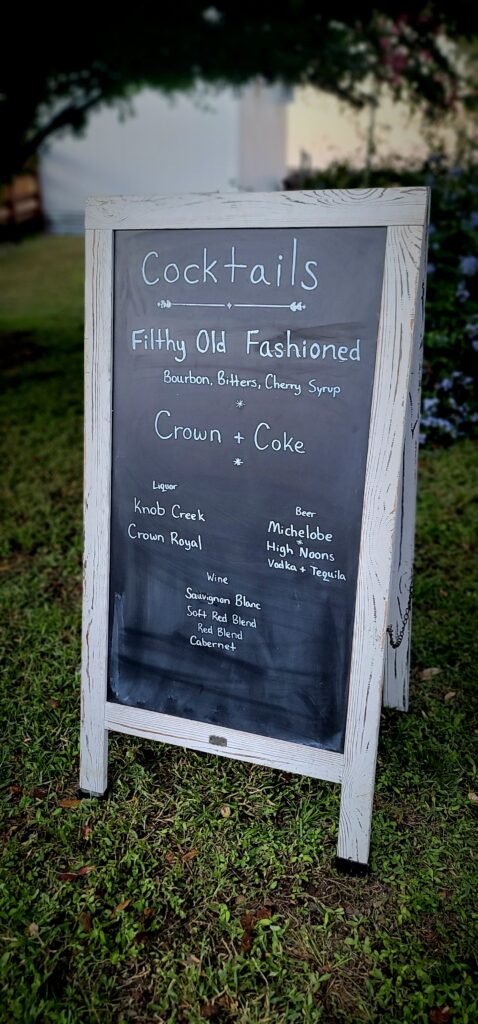 Cocktails
Filthy Old Fashioned
Bourbon, Bitters, Cherry Syrup
*
Crown + Coke
*
Liquor
Knob Creek
Crown Royal
Beer
Michelobe
*
High Noons
Vodka + Tequila
Wine
Sauvignon Blanc
Soft Red Blend
Red Blend
Cabernet